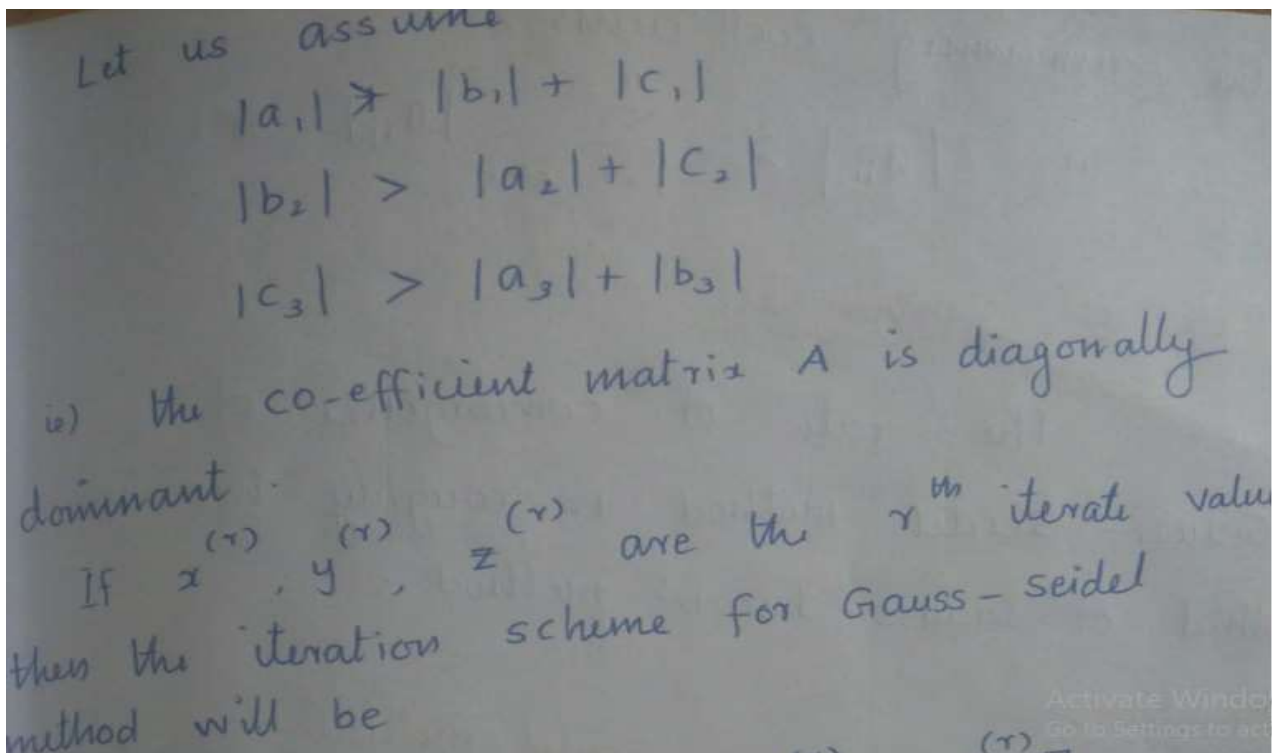 Let us assume
|a₁| > |b₁| + |c₁|
|b₂| > |a₂| + |c₂|
|c₃| > |a₃| + |b₃|
ie) the co-efficient matrix A is diagonally
dominant.
If x^(r), y^(r), z^(r) are the r^th iterate value
then the iteration scheme for Gauss-seidel
method will be
(r)
Activate Windo
Go to Settings to act